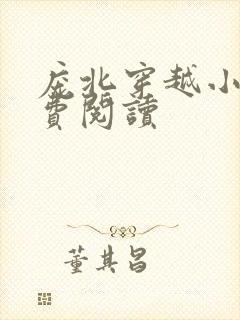 庶北穿越小
費閱讀
董其昌